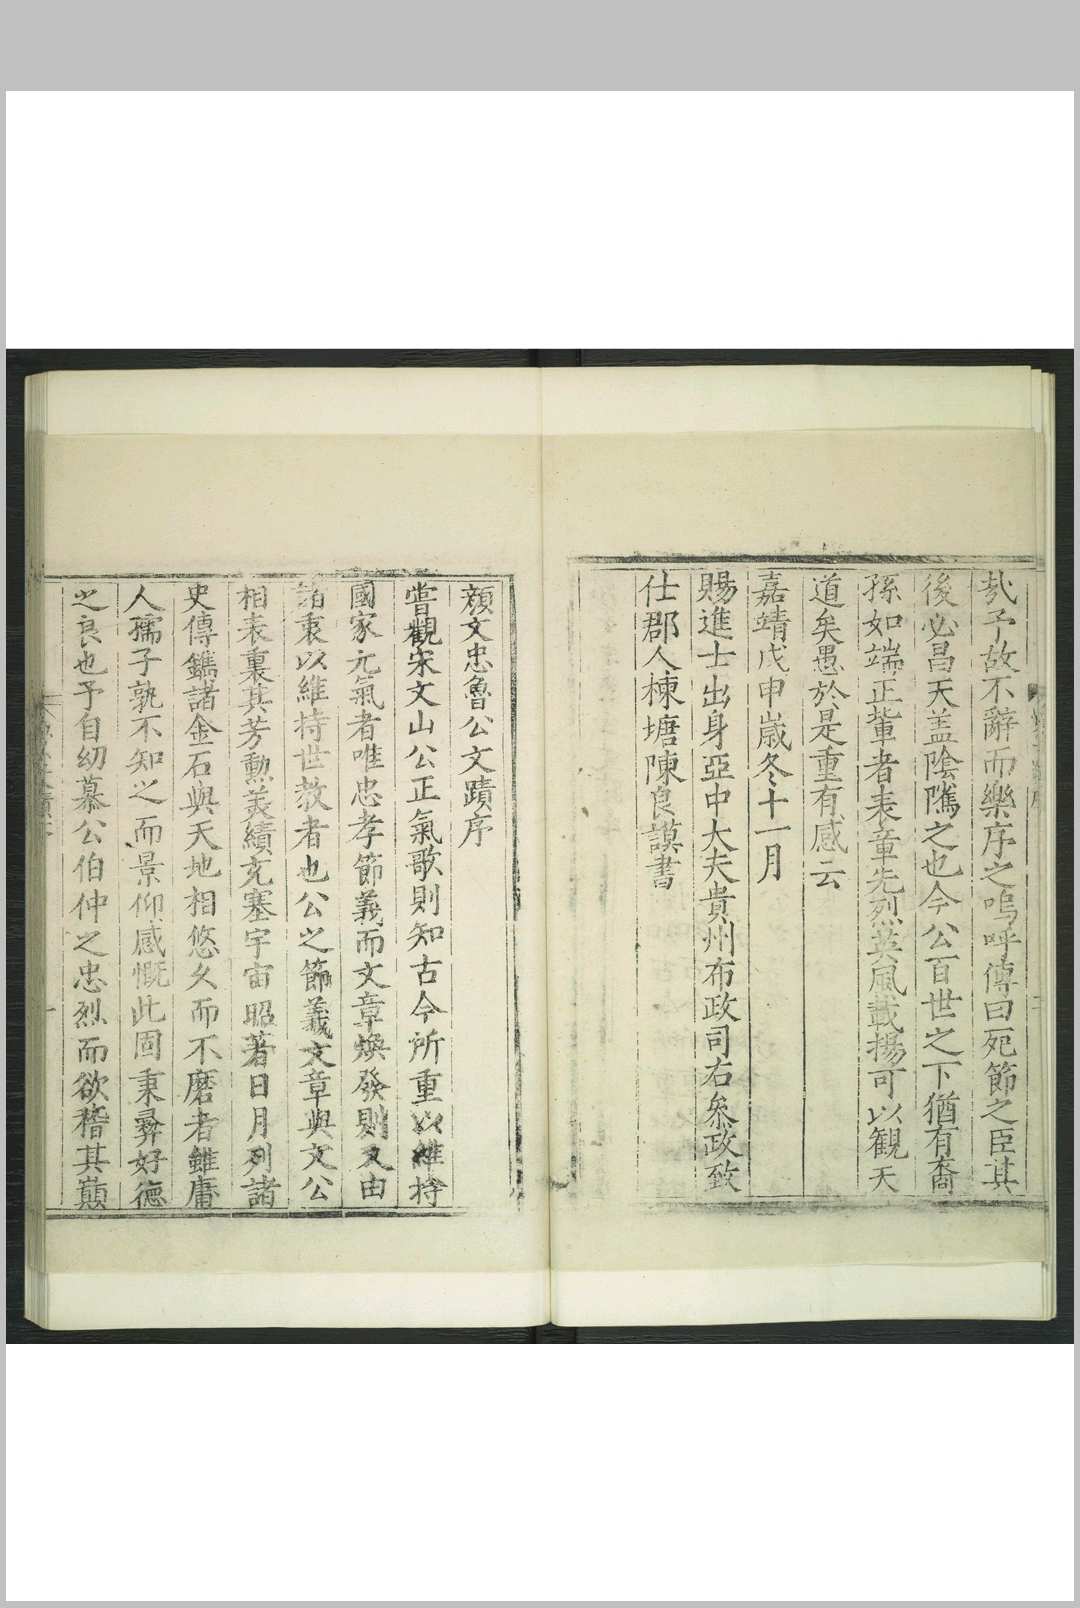 哉予故不辭而樂序之嗚呼傳曰死節之臣其
後必昌天蓋陰隲之也今公百世之下猶有裔
孫如端正輩者表章先烈英風載揚可以觀天
道矣愚於是重有感云
嘉靖戊申歲冬十一月
賜進士出身亞中大夫貴州布政司右叅政致
仕郡人楝塘陳良謨書
顏文忠魯公文蹟序
嘗觀宋文山公正氣歌則知古今所重以維持
國家元氣者唯忠孝節義而文章煥發則又由
諸衷以維持世教者也公之節義文章與文公
相表裏其芳勲美績充塞宇宙昭著日月列諸
史傳鐫諸金石與天地相悠久而不磨者雖庸
人孺子孰不知之而景仰感慨此固秉彝好德
之良也予自幼慕公伯仲之忠烈而欲稽其巔